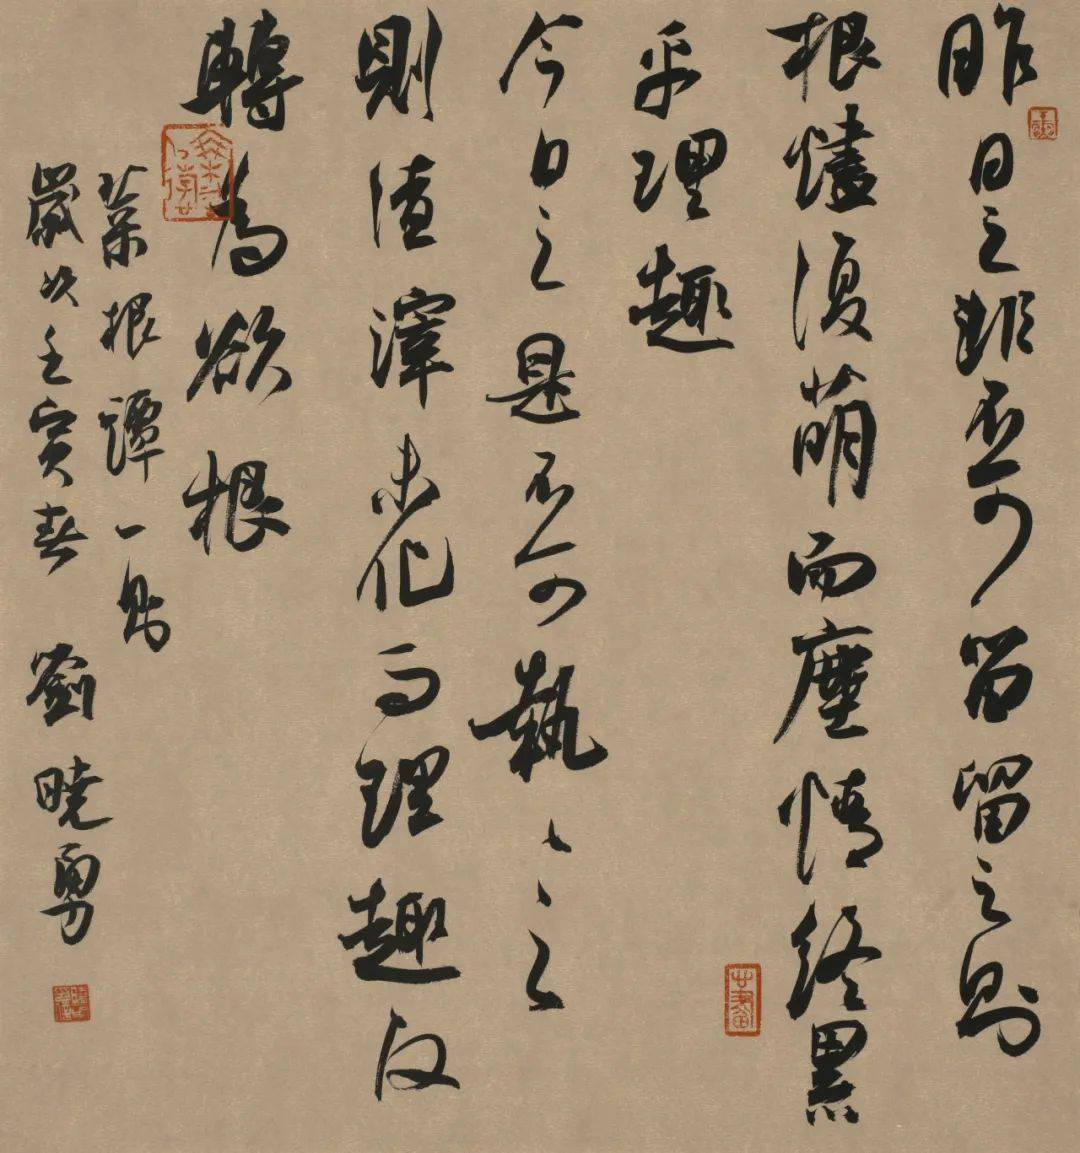 昨日之非不可留留之則
根燼復萌而塵情終累
乎理趣
今日之是不可執〻之
則渣滓未化而理趣反
轉為欲根
菜根譚一則
歲次壬寅春 劉曉勇